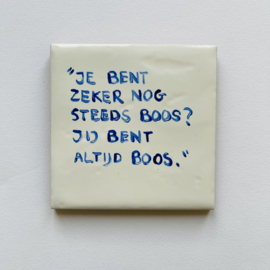 "JE BENT
ZEKER NOG
STEEDS BOOS?
JIJ BENT
ALTIJD BOOS."